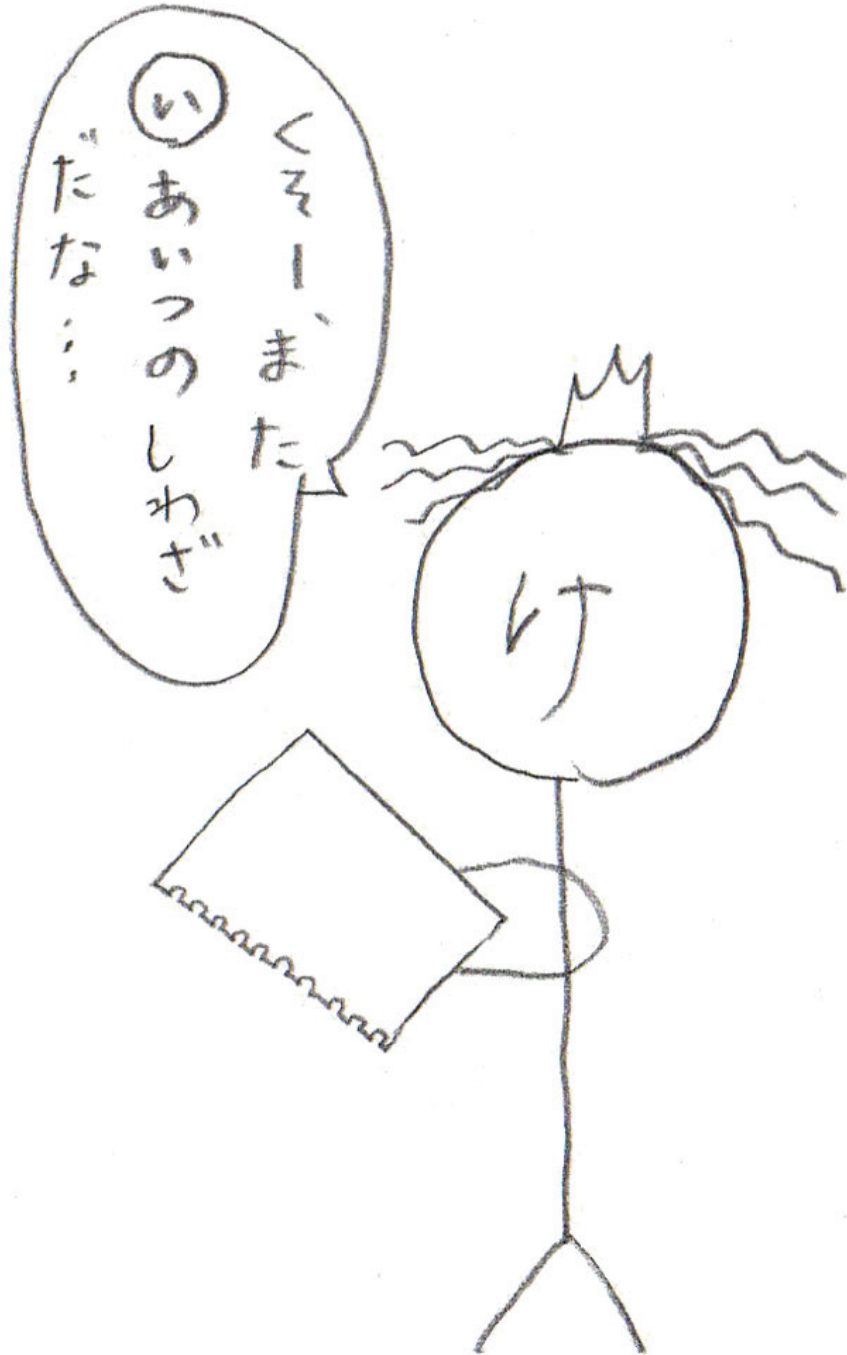 くそー、また
い あいつのしわざ
だな…
け